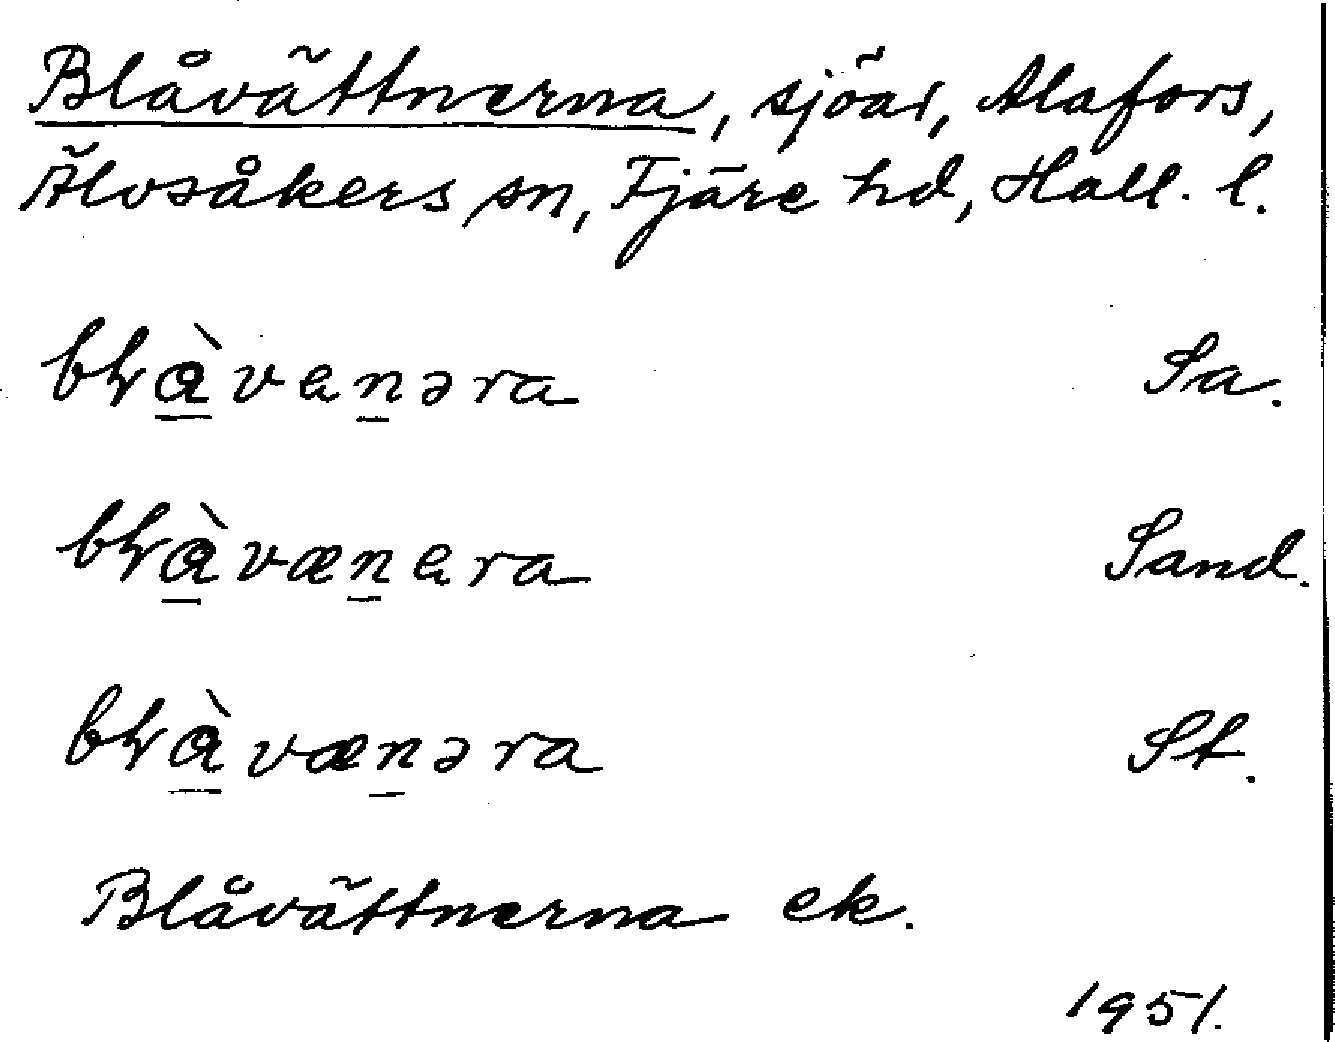 Blåvättnerna, sjöar, Alafors,
Älvsåkers sn, Fjäre hd, Hall. l.
bɫɑ̀venəra Sa.
bɫɑ̀vænera Sand.
bɫɑ̀vænəra St.
Blåvättnerna ek.
1951.